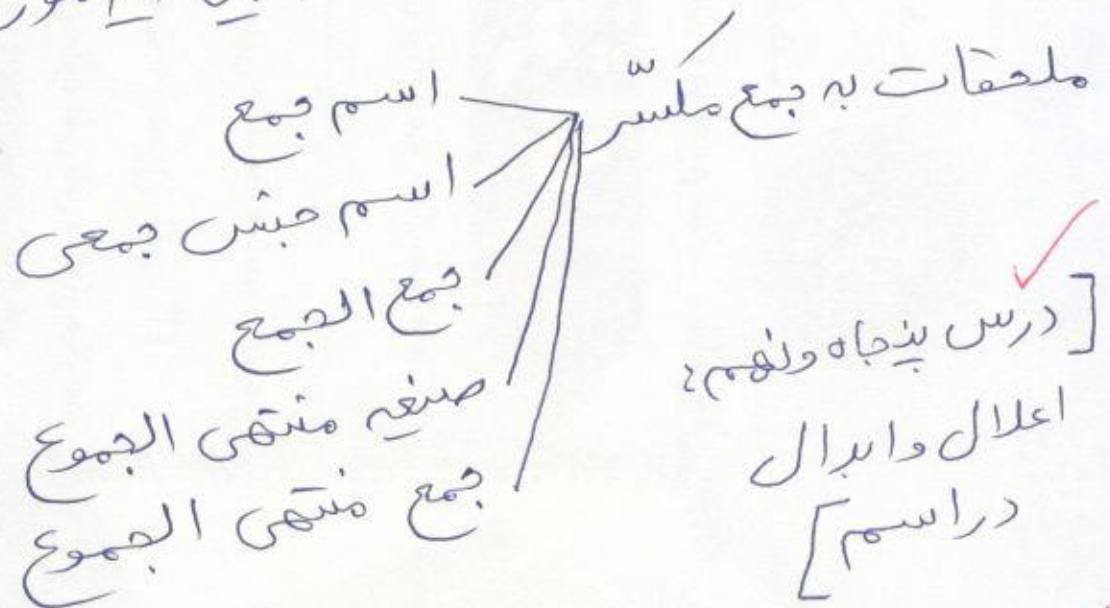 ملحقات به جمع مکسّر
اسم جمع
اسم جنس جمعی
جمع الجمع
صیغه منتهی الجموع
جمع منتهی الجموع
[درس پنجاه ونهم:
اعلال وابدال
در اسم]